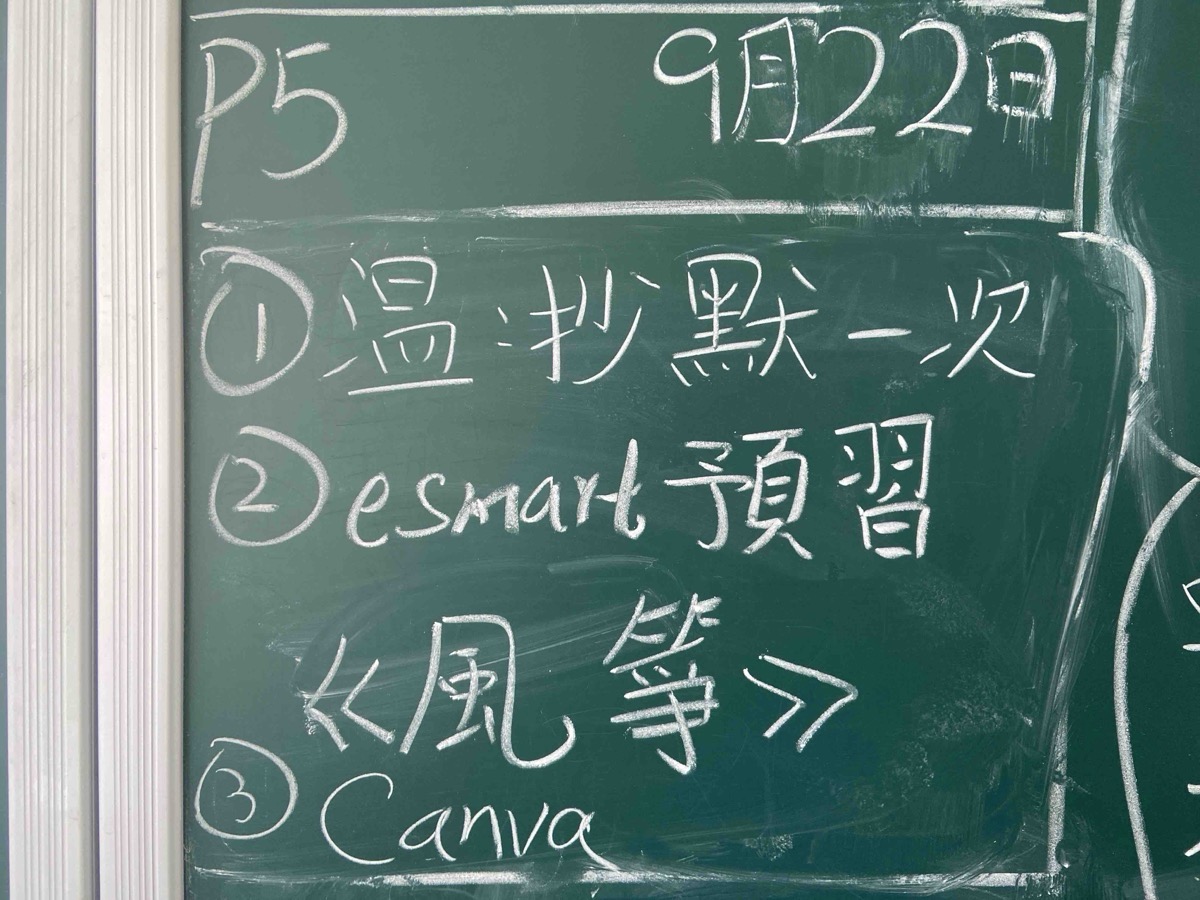 P5 9月22日
① 溫:抄默一次
② esmart 預習
《風箏》
③ Canva